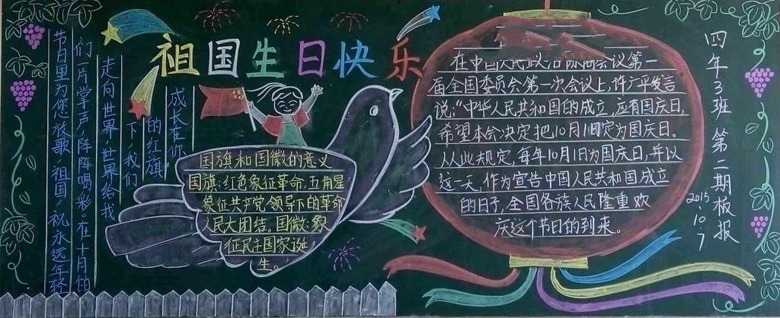 祖国生日快乐
成长在你
的红旗
下,我们
走向世界,世界给我
们一片掌声,阵阵喝彩。在十月的
节日里为您放歌 祖国,祝永远年轻
国旗和国徽的意义
国旗:红色象征革命,五角星
象征共产党领导下的革命
人民大团结,国徽:象
征民主国家诞
生。
在中国人民政治协商会议第一
届全国委员会第一次会议上,许广平发言
说:“中华人民共和国的成立,应有国庆日,
希望本会决定把10月1日定为国庆日。
从此规定,每年10月1日为国庆日,并以
这一天,作为宣告中国人民共和国成立
的日子,全国各族人民隆重欢
庆这个节日的到来。
四年3班 第二期板报
2015
10.7